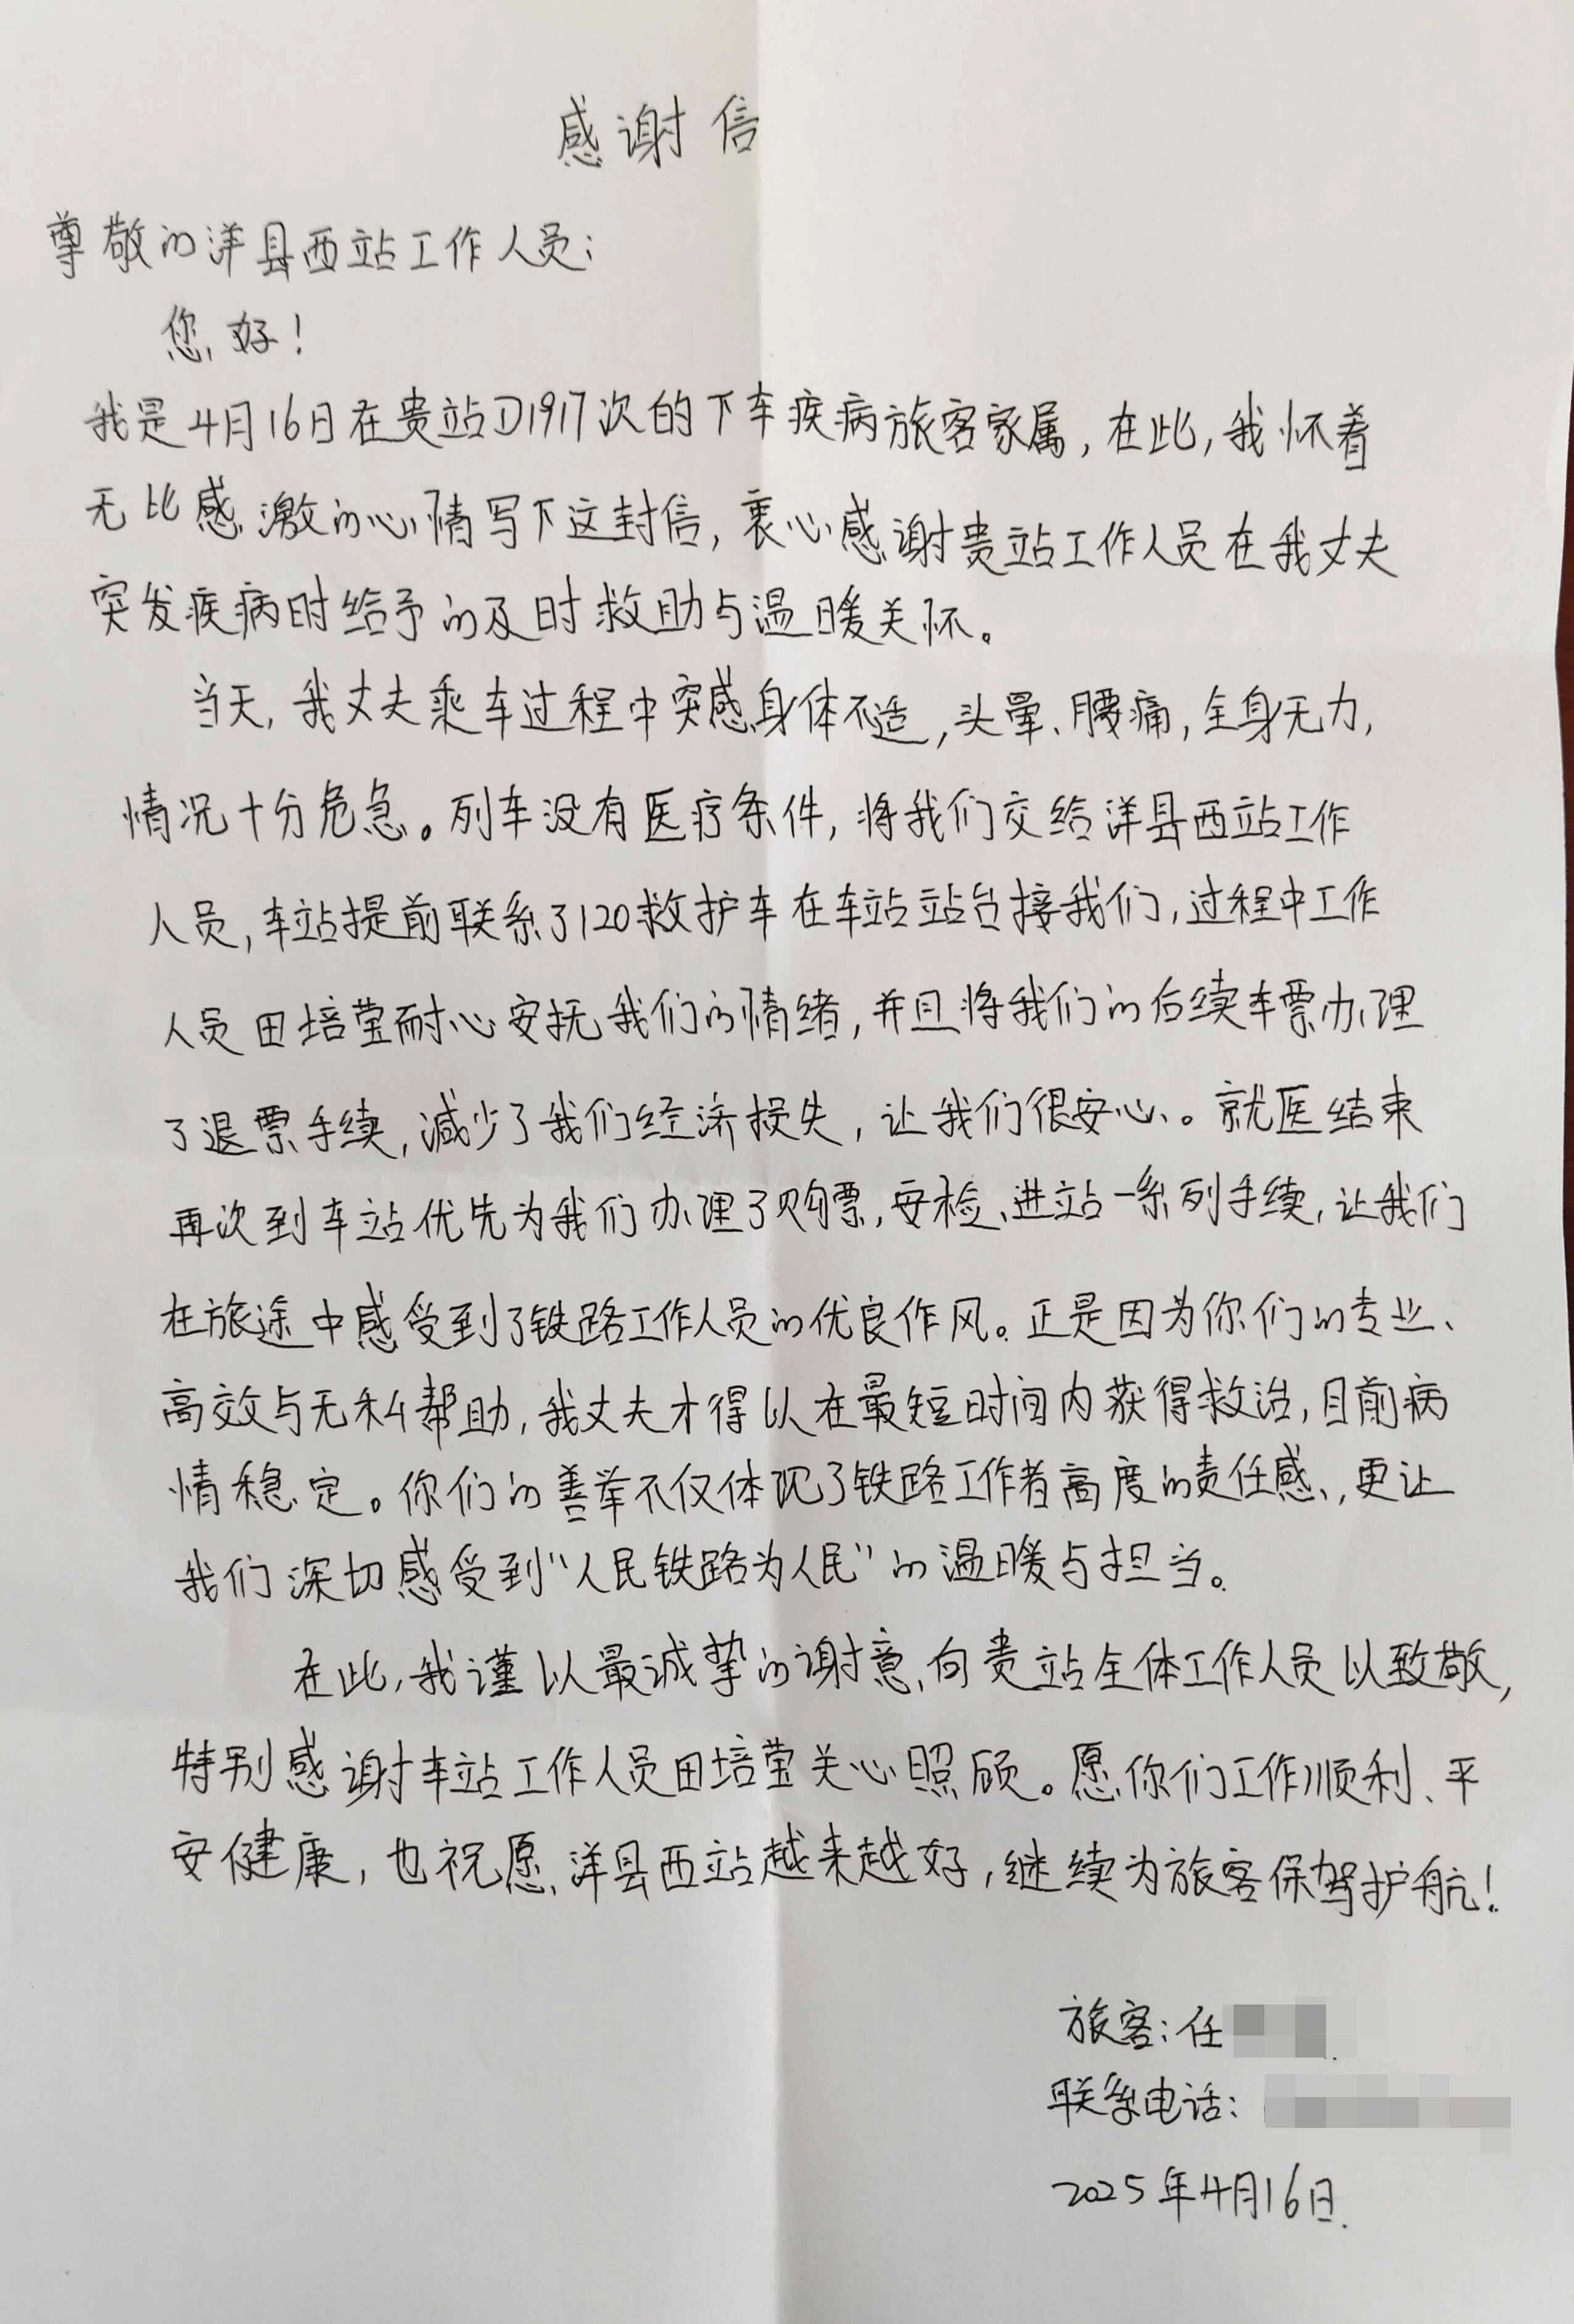 感谢信
尊敬的洋县西站工作人员：
您好！
我是4月16日在贵站D1917次的下车疾病旅客家属，在此，我怀着
无比感激的心情写下这封信，衷心感谢贵站工作人员在我丈夫
突发疾病时给予的及时救助与温暖关怀。
当天，我丈夫乘车过程中突感身体不适，头晕、腰痛，全身无力，
情况十分危急。列车没有医疗条件，将我们交给洋县西站工作
人员，车站提前联系了120救护车在车站站台接我们，过程中工作
人员田培莹耐心安抚我们的情绪，并且将我们的后续车票办理
了退票手续，减少了我们经济损失，让我们很安心。就医结束
再次到车站优先为我们办理了购票，安检、进站一系列手续，让我们
在旅途中感受到了铁路工作人员的优良作风。正是因为你们的专业、
高效与无私帮助，我丈夫才得以在最短时间内获得救治，目前病
情稳定。你们的善举不仅体现了铁路工作者高度的责任感，更让
我们深切感受到“人民铁路为人民”的温暖与担当。
在此，我谨以最诚挚的谢意，向贵站全体工作人员以致敬，
特别感谢车站工作人员田培莹关心照顾。愿你们工作顺利、平
安健康，也祝愿洋县西站越来越好，继续为旅客保驾护航！
旅客：任
联系电话：
2025年4月16日.